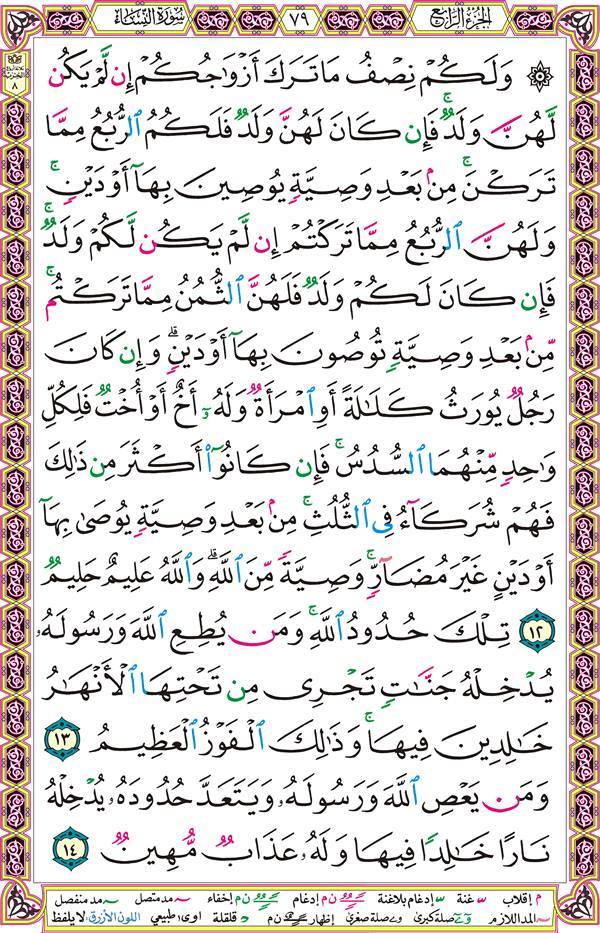 الجزء الرابع
٧٩
سورة النساء
٨
۞ وَلَكُمْ نِصْفُ مَا تَرَكَ أَزْوَٰجُكُمْ إِن لَّمْ يَكُن
لَّهُنَّ وَلَدٌۚ فَإِن كَانَ لَهُنَّ وَلَدٌ فَلَكُمُ ٱلرُّبُعُ مِمَّا
تَرَكْنَۚ مِنۢ بَعْدِ وَصِيَّةٍ يُوصِينَ بِهَآ أَوْ دَيْنٍۚ
وَلَهُنَّ ٱلرُّبُعُ مِمَّا تَرَكْتُمْ إِن لَّمْ يَكُن لَّكُمْ وَلَدٌۚ
فَإِن كَانَ لَكُمْ وَلَدٌ فَلَهُنَّ ٱلثُّمُنُ مِمَّا تَرَكْتُمۚ
مِّنۢ بَعْدِ وَصِيَّةٍ تُوصُونَ بِهَآ أَوْ دَيْنٍۗ وَإِن كَانَ
رَجُلٌ يُورَثُ كَلَٰلَةً أَوِ ٱمْرَأَةٌ وَلَهُۥٓ أَخٌ أَوْ أُخْتٌ فَلِكُلِّ
وَٰحِدٍ مِّنْهُمَا ٱلسُّدُسُۚ فَإِن كَانُوٓا۟ أَكْثَرَ مِن ذَٰلِكَ
فَهُمْ شُرَكَآءُ فِى ٱلثُّلُثِۚ مِنۢ بَعْدِ وَصِيَّةٍ يُوصَىٰ بِهَآ
أَوْ دَيْنٍ غَيْرَ مُضَآرٍّۚ وَصِيَّةً مِّنَ ٱللَّهِۗ وَٱللَّهُ عَلِيمٌ حَلِيمٌ
١٢ تِلْكَ حُدُودُ ٱللَّهِۚ وَمَن يُطِعِ ٱللَّهَ وَرَسُولَهُۥ
يُدْخِلْهُ جَنَّٰتٍ تَجْرِى مِن تَحْتِهَا ٱلْأَنْهَٰرُ
خَٰلِدِينَ فِيهَاۚ وَذَٰلِكَ ٱلْفَوْزُ ٱلْعَظِيمُ ١٣
وَمَن يَعْصِ ٱللَّهَ وَرَسُولَهُۥ وَيَتَعَدَّ حُدُودَهُۥ يُدْخِلْهُ
نَارًا خَٰلِدًا فِيهَا وَلَهُۥ عَذَابٌ مُّهِينٌ ١٤
م إقلاب غنة إدغام بلاغنة ن م إدغام ن م إخفاء مد متصل مد منفصل
المد اللازم صلة كبرى صلة صغرى إظهار ن م قلقلة اوى طبيعي اللون الأزرق: لا يلفظ